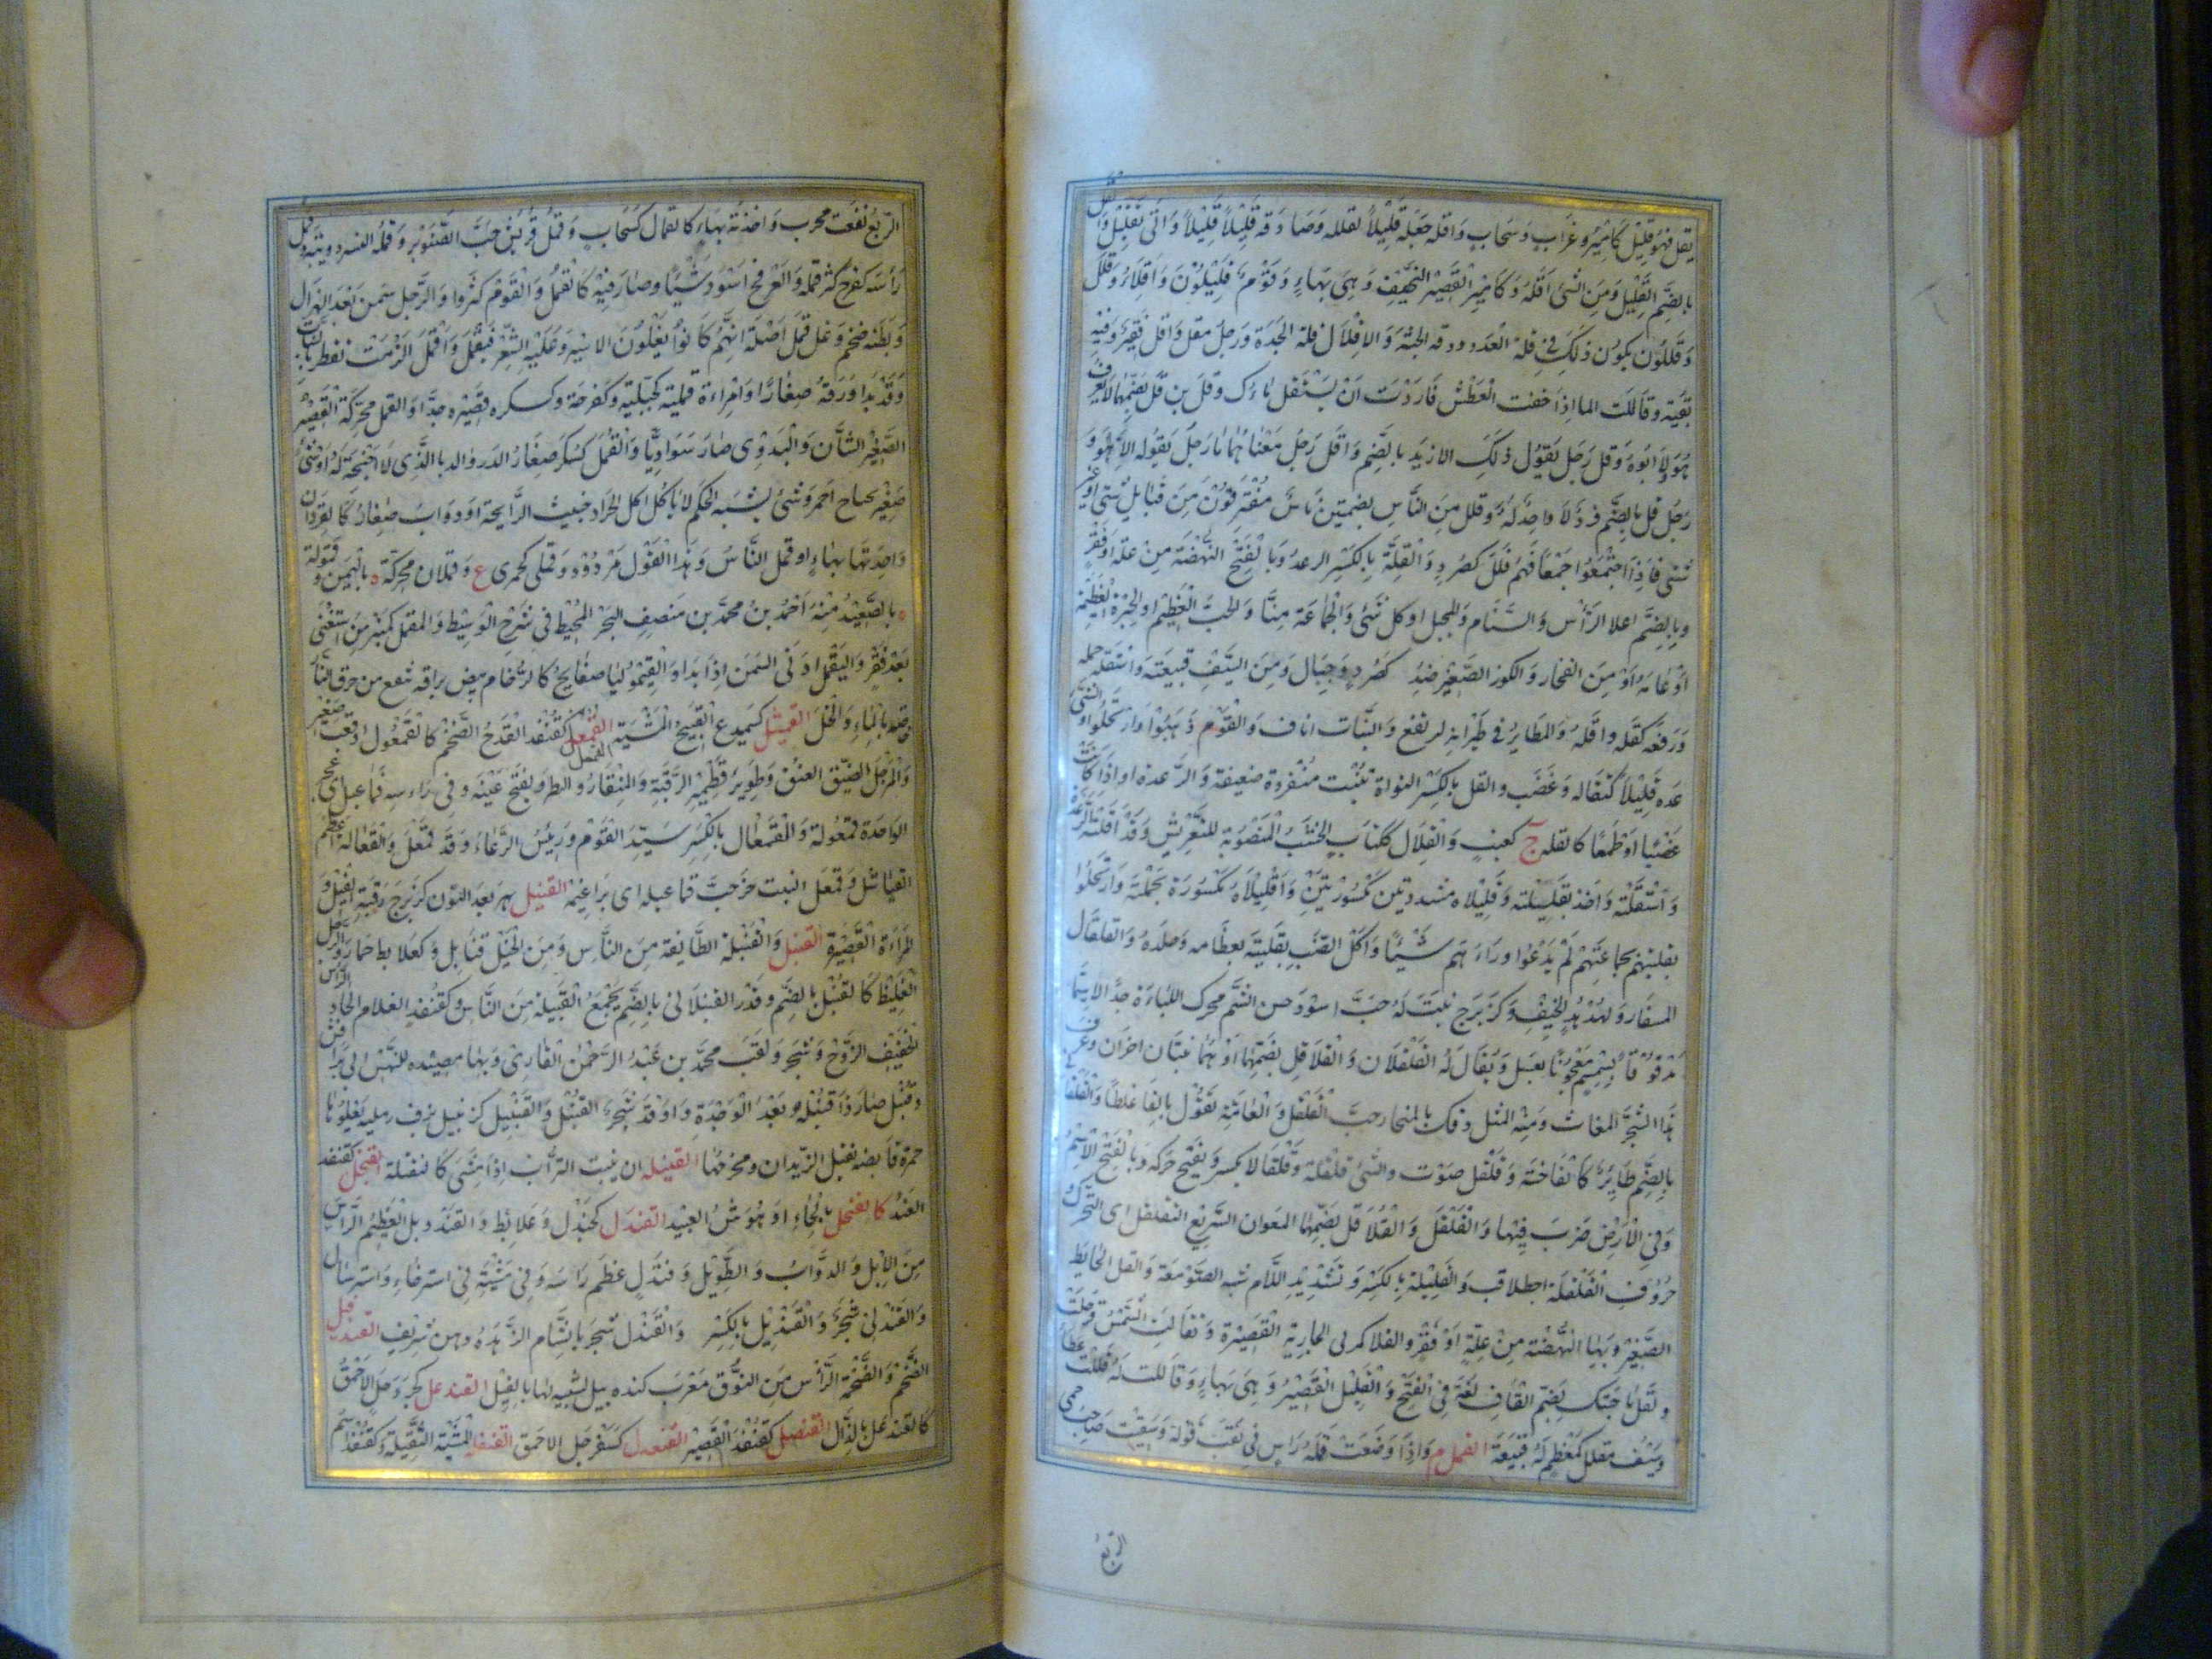 يقل فهو قليل كامير وغراب وسحاب واقله جعله قليلا كقلله وصادقه قليلا واتى بقليل والقل
بالضم القليل ومن الشئ اقله وكامير القصير النحيف وهى بهاء وقوم قليلون واقلاء وقلل
وقللون يكون ذلك فى قلة العدد ودقة الجثة والاقلال قلة الجدة ورجل مقل واقل فقير وفيه
بقية وقاللت الماء اذا خفت العطش فاردت ان يستقل ماءك وقل بن قل بضمهما لا يعرف
هو ولا ابوه وقل رجل يقول ذلك الا زيد بالضم واقل رجل معناهما ما رجل يقوله الا هو و
رجل قل بالضم فرد لا واحد له وقلل من الناس بضمتين ناس متفرقون من قبايل شتى او غير
شتى فاذا اجتمعوا جمعا فهم قلل كصرد والقلة بالكسر الرعدة وبالفتح النهضة من علة او فقر
وبالضم اعلا الرأس والسنام والجبل او كل شئ والجماعة منا والحب العظيم او الجرة العظيمة
او عامة او من الفخار والكوز الصغير ضد كصرد وجبال ومن السيف قبيعته واستقله حمله
ورفعه كقله واقله والطاير فى طيرانه ارتفع والنبات اناف والقوم ذهبوا وارتحلوا والشئ
عده قليلا كتقاله وغضب والقل بالكسر النواة تنبت منفردة ضعيفة والرعدة او اذا كانت
غضبا او طمعا كالقلة ج كعنب والقلال ككتاب الخشب المنصوبة للتعريش وقد اقلته الرعدة
واستقلته واخذ بقليلته وقليلاه مشددتين مكسورتين واقليلاه مكسورة بجملته وارتحلوا
بقليتهم بجماعتهم لم يدعوا وراءهم شيئا واكل الضب بقليته بعظامه وجلده والقلقال
المسفار وكهدهد الخفيف وكزبرج نبت له حب اسود حسن الشم محرك للباءة جدا لا سيما
مدقوقا بسمسم معجونا بعسل ويقال له القلقلان والقلاقل بضمهما او هما نبتان اخران وعرق
هذا الشجر المغاث ومنه المثل دقك بالمنحاز حب القلقل والعامة تقول بالفا غلطا والقلقلانى
بالضم طاير كالفاختة وقلقل صوت والشئ قلقلة وقلقالا بكسر ويفتح حركه وبالفتح الاسم
وفى الارض ضرب فيها والقلقل والقلاقل بضمهما المعوان السريع التقلقل اى التحرك و
حروف القلقلة جطدقب والقلية بالكسر وتشديد اللام شبه الصومعة والقل الحايط
الصغير وبها النهضة من علة او فقر والقلا كربى الجارية القصيرة وتقالت الشمس ترحلت
وتقل ما جئتك بضم القاف لغة فى الفتح والقليل القصير وهى بهاء وقاللت له قللت عطاءه
وسيف مقلل كمعظم له قبيعة القمل م واذا وضعت قملة راس فى ثقب فولة وسقيت صاحب حمى
الربع
الربع نفعت مجرب واحدته بهاء كالقمال كسحاب وقمل قريش حب الصنوبر وقملة النسر دويبة وقمل
رأسه كفرح كثر قمله والعرفج اسود شيئا وصار فيه كالقمل والقوم كثروا والرجل سمن بعد الهزال
وبطنه ضخم وغل قمل اصله انهم كانوا يغلون الاسير وعليه الشعر فيقمل واقمل الرمث تفطر بالنبات
وقد بدا ورقه صغارا وامراءة قملية كجبلية وكفرحة وكسكره قصيره جدا والقمل محركة القصير
الصغير الشأن والبدوى صار سواديا والقمل كسكر صغار الذر والدبا الذى لا اجنحة له او شئ
صغير بجناح احمر وشئ يشبه الحلم لا ياكل اكل الجراد خبيث الرايحة او دواب صغار كالقردان
واحدتها بهاء او قمل الناس وهذا القول مردود وقملى كجمزى ع وقملان محركة ه باليمن وقمولة
ه بالصعيد منه احمد بن محمد بن مصنف البحر المحيط فى شرح الوسيط والمقمل كمنبر من استغنى
بعد فقر واليقمل ادنى السمن اذا بدا والقيموليا صفايح كالرخام بيض براقه تنفع من حرق النار
خصه بالماء والخل القميثل كسميدع القبيح المشية القمعل كقنفذ القدح الضخم كالقمعول او قعب صغير
والرجل الضيق العنق وطوير قطير الرقبة والمنقار والبظر ويفتح عينه وفى رءاسه قماعيل اى عجر
الواحدة قمعولة والقمعال بالكسر سيد القوم ورئيس الرعاء وقد قمعل والقمعالة اعظم
الفياشل وقمعل النبت خرجت قماعيله اى براعيمه القنيل بهمزة بعد النون كزبرج رقبة الفيل و
المراءة القصيرة القنبل والقنبلة الطايفة من الناس ومن الخيل قنابل وكعلابط حمار والرجل
الغليظ كالقنبل بالضم وقدر القنبلانى بالضم يجمع القبيلة من الناس وكقنفذ الغلام الحاد الرأس
الخفيف الروح وشجر ولقب محمد بن عبد الرحمن القارى وبها مصيده للنهس ابى براقش
وقنبل صار ذا قنبلة بعد الوحدة واوقد شجر القنبل والقنبيل كزنبيل بزور رملية يعلوها
حمرة قابضه تقتل الديدان ومخرجها القنثله ان ينبت التراب اذا مشى كالنقثلة القنجل كقنفذ
العبد كالقنحل بالحاء او هو شر العبيد القندل كجندل وعلابط والقندويل العظيم الرأس
من الابل والدواب والطويل وقندل عظم رأسه وفى مشيته فى استرخاء واسترسال
والقندلى شجر والقنديل بالكسر والقندل شجر بالشام الزهده دهن شريف القندفيل
الضخم والضخمة الرأس من النوق معرب كنده بيل تشبيه لها بالفيل القندعل كجردحل الاحمق
كالقندعل بالذال القنصل كقنفذ القصير القنعدل كسفرجل الاحمق القنفل المشية الثقيلة وكقنفذ اسم